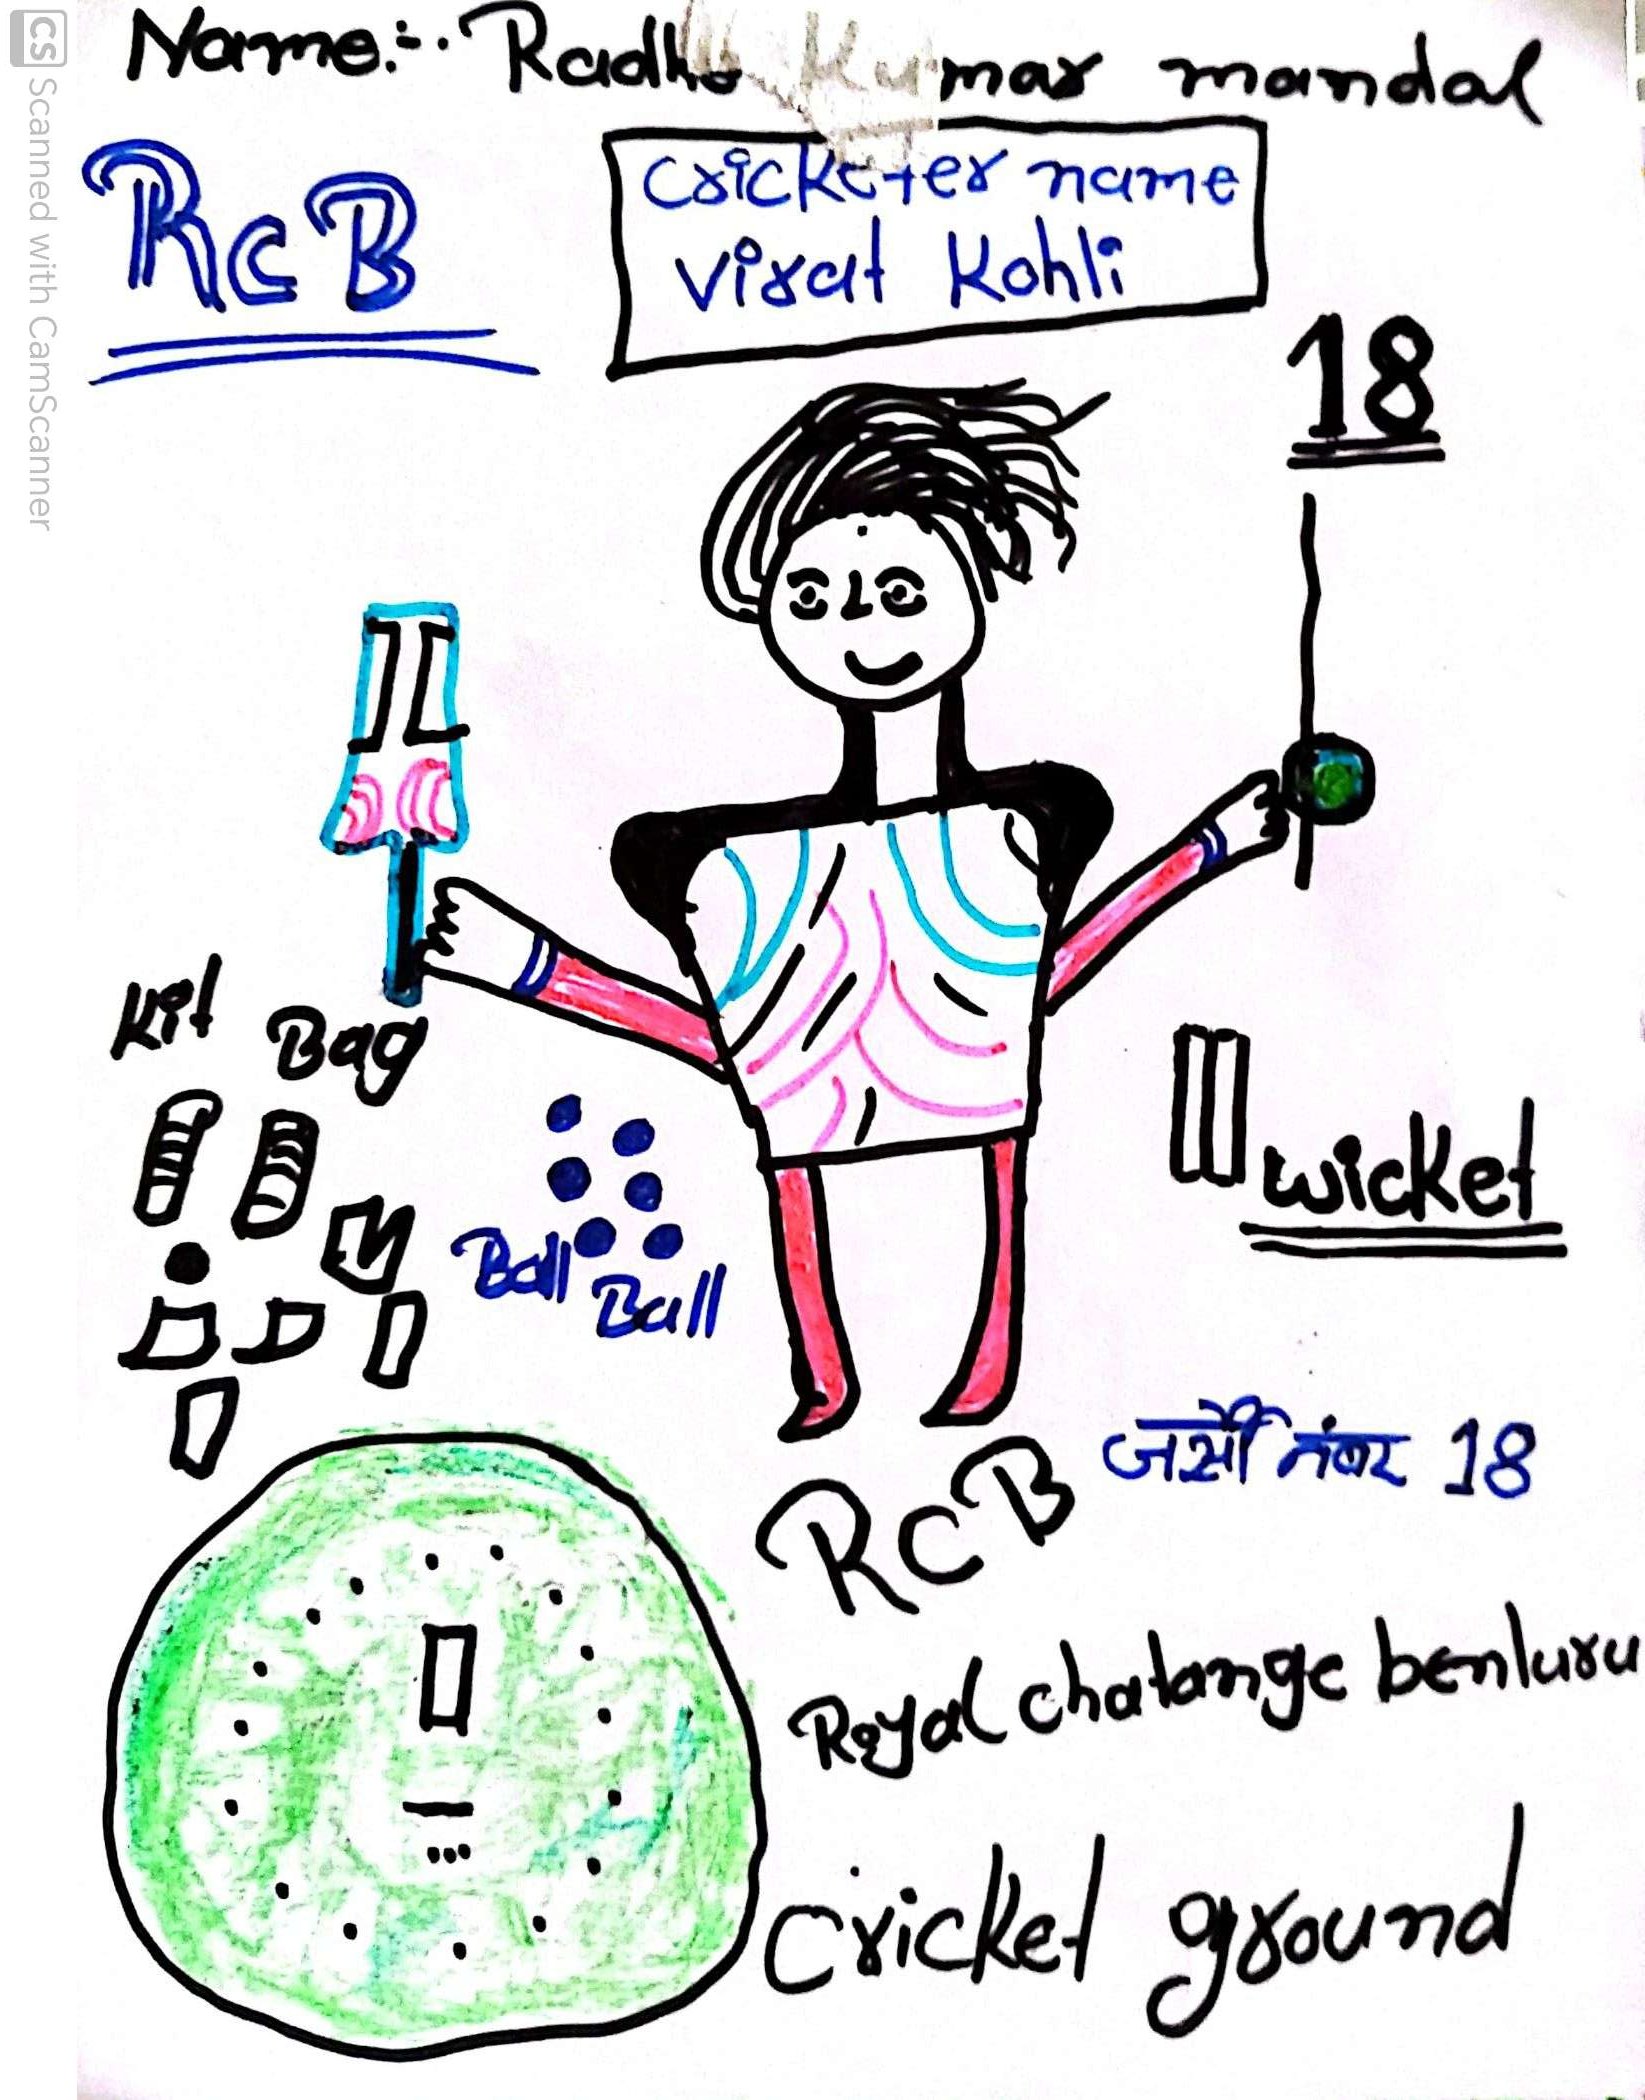 CS Scanned with CamScanner
Name:-. Radhe Kumar mandal
RCB
cricketer name
virat Kohli
18
Kit Bag
Ball
Ball
wicket
जर्सी नंबर 18
RCB
Royal chalange benluru
cricket ground